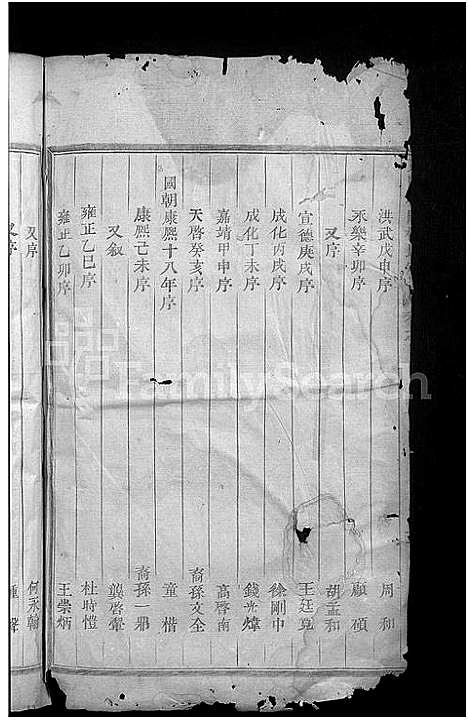 洪武戊申序 周和
永樂辛卯序 顧碩
又序 胡孟和
宣德庚戌序 王廷
成化丙戌序 徐剛中
成化丁未序 錢光煒
嘉靖甲申序 高啓南
天啓癸亥序 裔孫文全
國朝康熙十八年序 童楷
康熙己未序 裔孫一鼎
又敘 龔啓
雍正乙巳序 杜時愷
雍正乙卯序 王崇炳
又序 何永
又序
FamilySearch